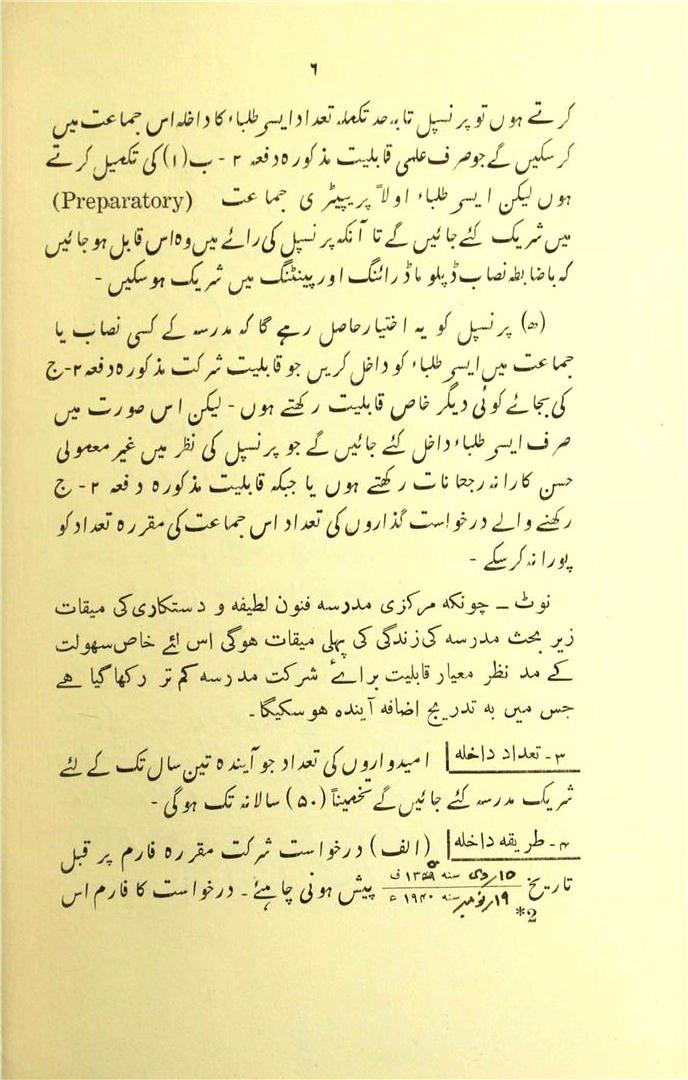 ٦
کرتے ہوں تو پرنسپل تابہ حد تکملہ تعداد ایسے طلباء کا داخلہ اس جماعت میں
کرسکیں گے جو صرف علمی قابلیت مذکورہ دفعہ ۲ - ب (۱) کی تکمیل کرتے
ہوں لیکن ایسے طلباء اولاً پریپیٹری جماعت (Preparatory)
میں شریک کئے جائیں گے تا آنکہ پرنسپل کی رائے میں وہ اس قابل ہوجائیں
کہ باضابطہ نصاب ڈپلوما ڈرائنگ اور پینٹنگ میں شریک ہوسکیں -
(ھ) پرنسپل کو یہ اختیار حاصل رہے گا کہ مدرسہ کے کسی نصاب یا
جماعت میں ایسے طلباء کو داخل کریں جو قابلیت شرکت مذکورہ دفعہ ۲-ج
کی بجائے کوئی دیگر خاص قابلیت رکھتے ہوں - لیکن اس صورت میں
صرف ایسے طلباء داخل کئے جائیں گے جو پرنسپل کی نظر میں غیر معمولی
حسن کارانہ رجحانات رکھتے ہوں یا جبکہ قابلیت مذکورہ دفعہ ۲ - ج
رکھنے والے درخواست گذاروں کی تعداد اس جماعت کی مقررہ تعداد کو
پورا نہ کرسکے -
نوٹ ــ چونکہ مرکزی مدرسہ فنون لطیفہ و دستکاری کی میقات
زیر بحث مدرسہ کی زندگی کی پہلی میقات ہوگی اس لئے خاص سہولت
کے مد نظر معیار قابلیت برائے شرکت مدرسہ کم تر رکھا گیا ہے
جس میں بہ تدریج اضافہ آیندہ ہوسکیگا -
۳- تعداد داخلہ امیدواروں کی تعداد جو آیندہ تین سال تک کے لئے
شریک مدرسہ کئے جائیں گے تخمیناً (۵۰) سالانہ تک ہوگی -
۴- طریقہ داخلہ (الف) درخواست شرکت مقررہ فارم پر قبل
تاریخ ۱۵ ردی سنه ۱۳۵۰ ف / ۱۹ ر نومبر سنه ۱۹۴۰ ء پیش ہونی چاہئے - درخواست کا فارم اس
*2